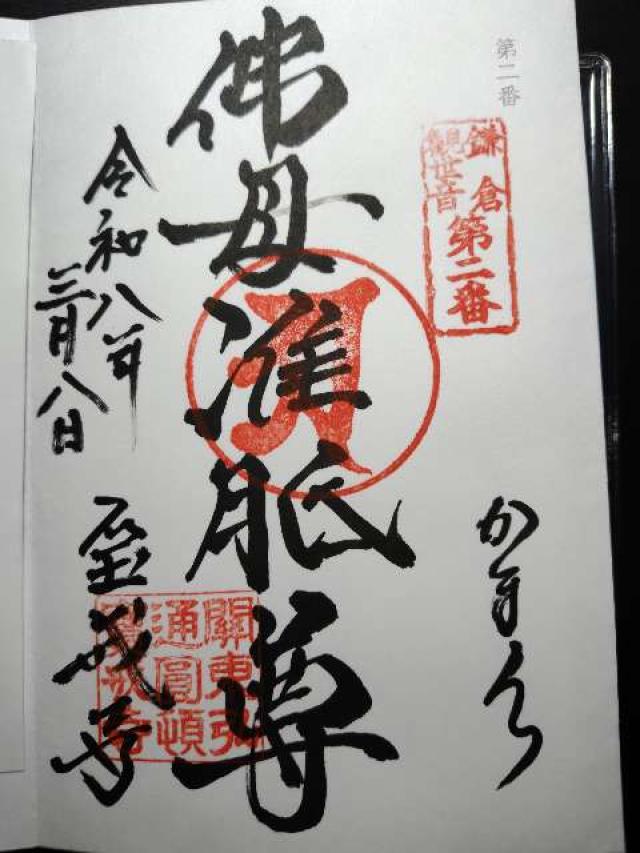 第二番
鎌倉
觀世音
第二番
かまくら
佛母准胝尊
令和八年
三月八日
宝戒寺
關東弘
通圓頓
寶戒寺